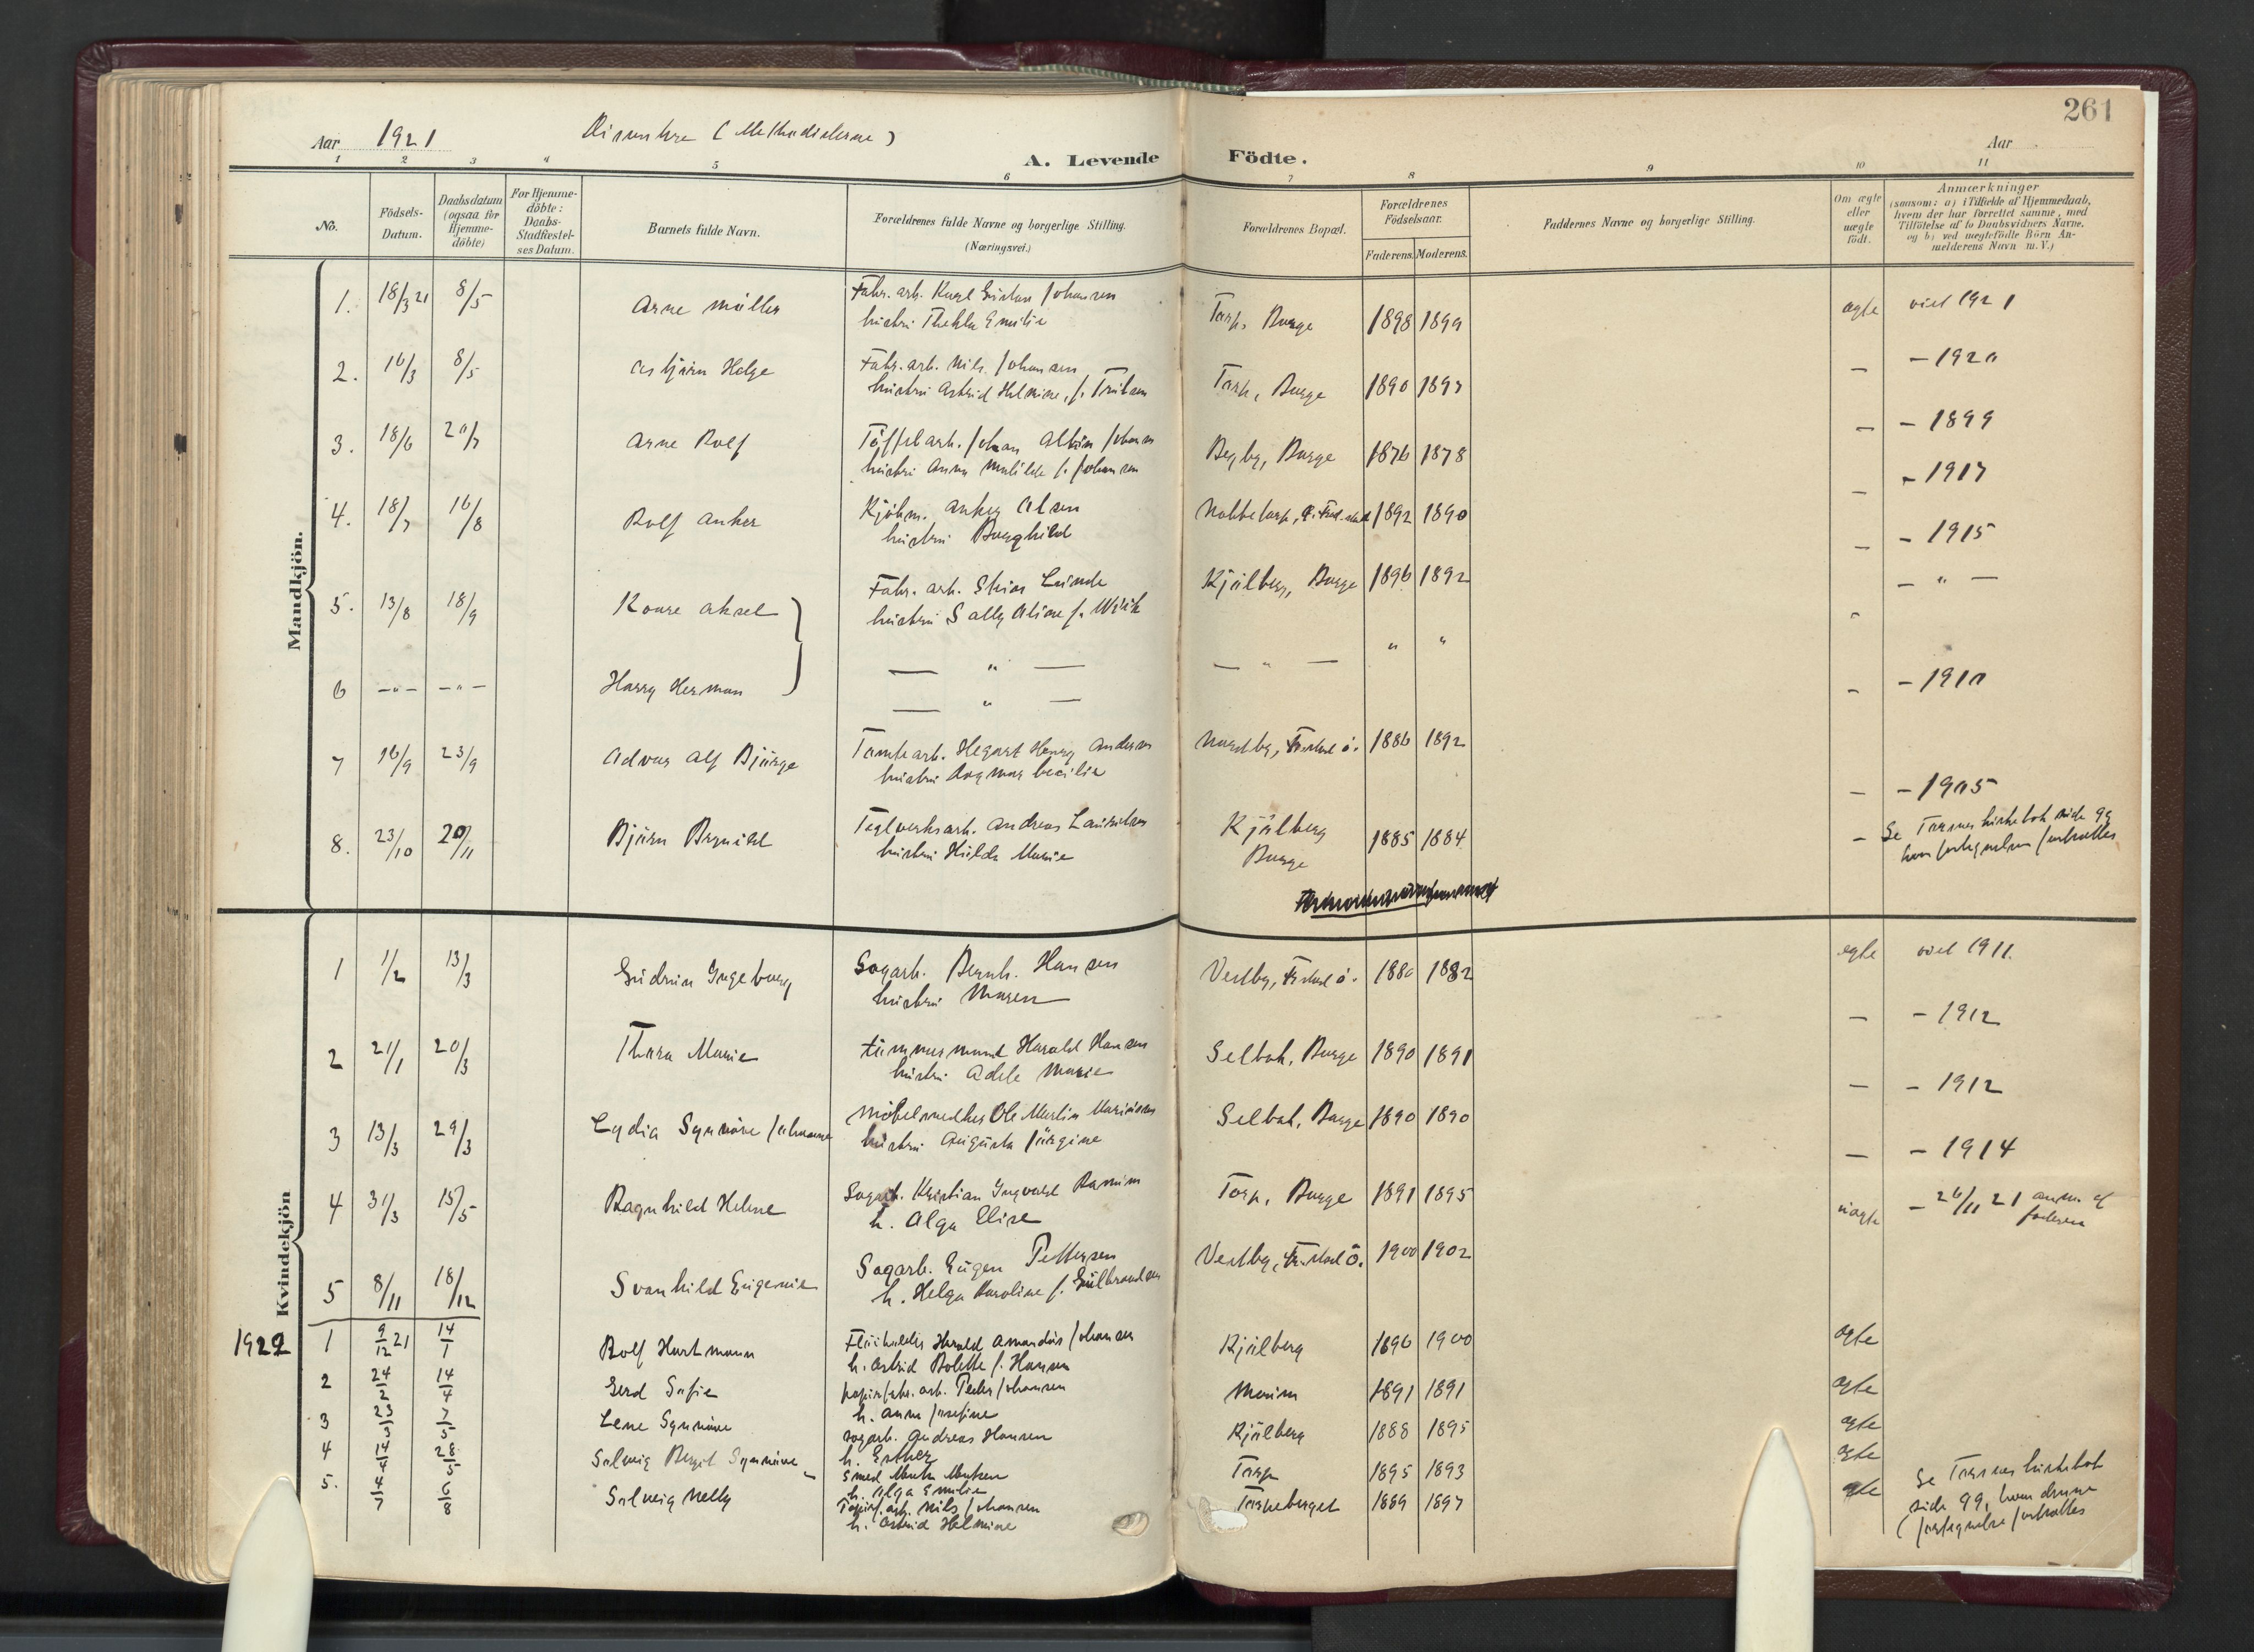 261
Aar 1921 (Methodisterne)
Aar
A. Levende Födte.
1 2 3 4 5 6 7 8 9 10 11
No.
Födsels-
Datum.
Daabsdatum
(ogsaa for
Hjemme-
döbte)
For Hjemme-
döbte:
Daabs-
Stadfæstel-
ses Datum.
Barnets fulde Navn.
Forældrenes fulde Navne og borgerlige Stilling.
(Næringsvei.)
Forældrenes Bopæl.
Forældrenes
Födselsaar.
Faderens. Moderens.
Faddernes Navne og borgerlige Stilling.
Om ægte
eller
uægte
födt.
Anmærkninger
(saasom: a) i Tilfælde af Hjemmedaab,
hvem der har forrettet samme, med
Tilföielse af to Daabsvidners Navne.
og b) ved uægtefödte Börn An-
melderens Navn m.V.)
Mandkjön.
1. 18/3 21 8/5 Arne Müller Fabr. arb. Karl Gustav Johansen Torp, Borge 1898 1899 ægte viet 1921
hustru Thekla Emilie
2. 16/3 8/5 Asbjørn Helge Fabr. arb. Nils Johansen Torp, Borge 1890 1897 — - 1920
hustru Astrid Helmine, f.
3. 18/6 20/7 Arne Rolf Johan Albin Johans Begby, Borge 1876 1878 — - 1899
hustru Anna Mathilde f. Johansen
4. 18/7 16/8 Rolf Anker Kjøbm. Anker Olsen Nabbetorp, 1892 1890 — - 1917
hustru Borghild
5. 13/8 18/9 Kaare Aksel Fabr. arb. Lunde Kjølberg, Borge 1896 1892 — - 1915
hustru Sally Aline f.
6 — " — — " — Harry Herman — " — — " — " " - — " —
— " —
7 16/9 23/9 Advar Alf Bjørge Tomtearb. Henry Anders Nordby, 1886 1892 - - 1910
hustru Dagmar Cecilie
8. 23/10 20/11 Bjørn Teglverksarb. Andreas Lauritsen Kjølberg 1885 1884 — - 1905
hustru Hilda Marie Borge
Se Torsnes kirkebok side 99
hvor fortegnelsen fortsættes
Kvindekjön
1 1/2 13/3 Gudrun Ingeborg Sagarb. Bernh. Hansen Vestby, 1880 1882 ægte viet 1911.
hustru Maren
2 21/1 20/3 Thora Marie tømmermand Harald Hansen Selbak, Borge 1890 1891 — - 1912
hustru Adele Marie
3 13/3 29/3 Lydia Synnøve Johanne Møbelsnedker Ole Martin Selbak, Borge 1890 1890 — - 1912
hustru Augusta Jørgine
4 31/3 15/5 Ragnhild Helene Sagarb. Kristian Ingvald Torp, Borge 1891 1895 — - 1914
h. Olga Elise
5 8/11 18/12 Svanhild Eugenie Sagarb. Eugen Pettersen Vestby, 1900 1902 uægte - 26/11 21 anm. af
h. Helga Karoline f. Gulbrandsen faderen
1922 1 9/12 21 14/1 Rolf Hartmann Harald Amandus Johansen Kjølberg 1896 1900 ægte
h. Astrid Bolette f. Hansen
2 24/2 14/4 Gerd Sofie papirfabr. arb. Peder Johansen Moum 1891 1891 ægte
h. Anna Josefine
3 7/5 Lene Synnøve sagarb. Andreas Hansen Kjølberg 1888 1895 ægte
h. Esther
4 14/4 28/5 Solveig Bergit Synnøve Smed Torp 1895 1893 ægte
h. Olga Emilie
5. 4/7 6/8 Solveig Nelly arb. Nils Johansen Torpeberget 1889 1897 ægte
h. Astrid Helmine
Se Torsnes kirkebok
side 99, hvor denne
fortegnelse fortsættes